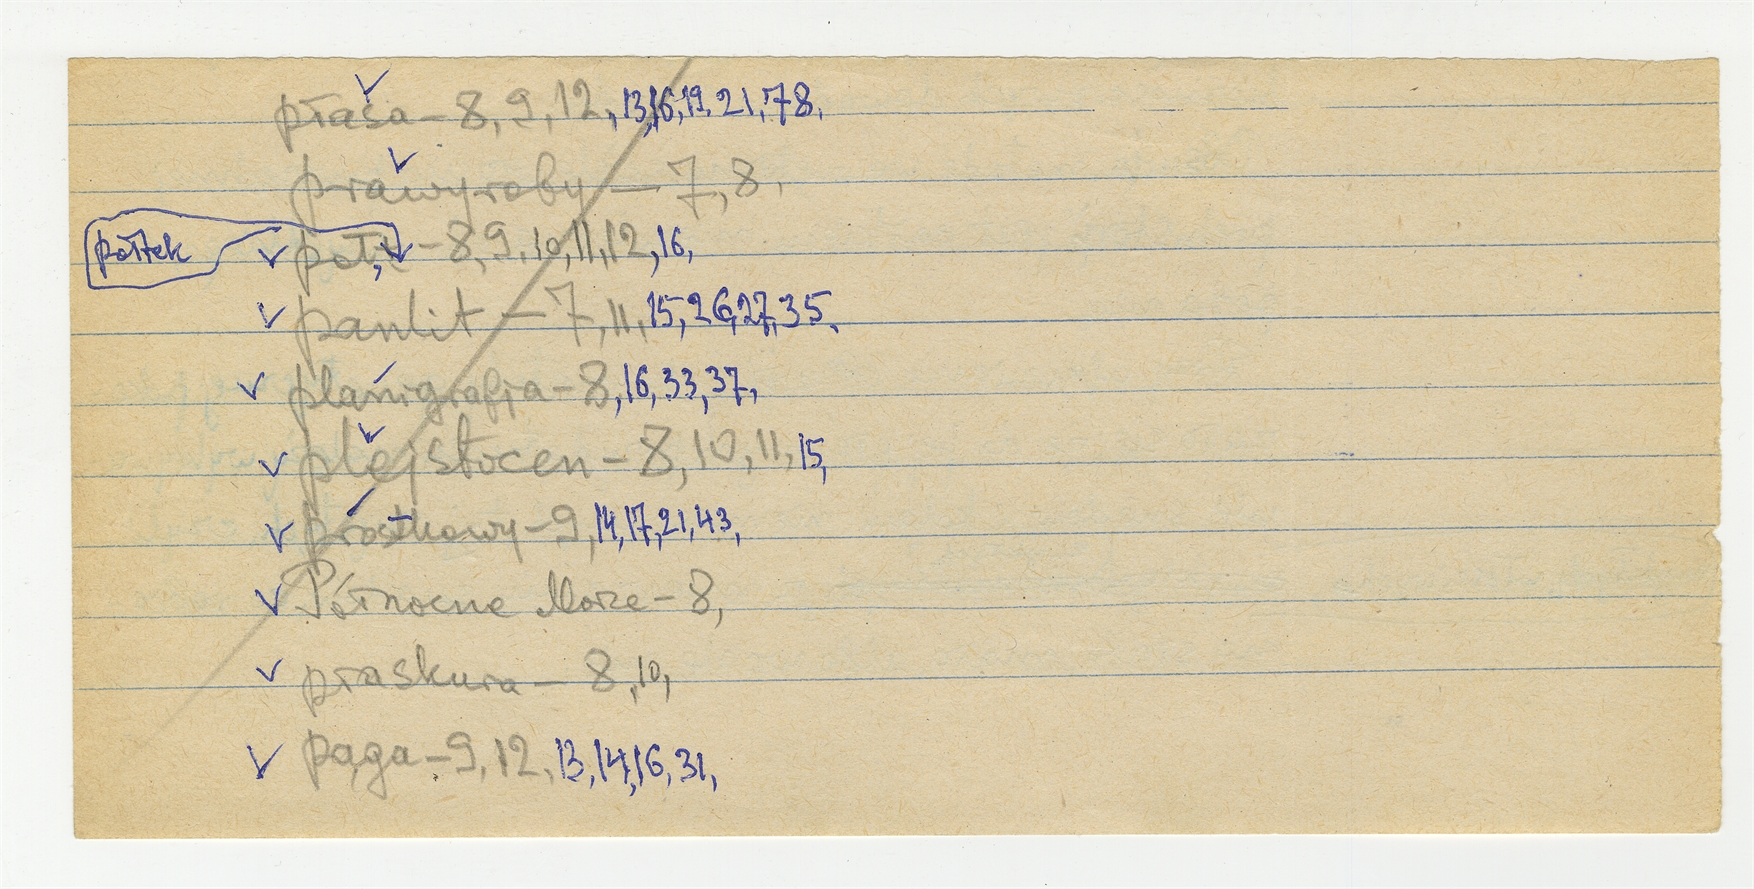 płasa – 8, 9, 12, 13, 16, 19, 21, 78,
prawyroby – 7, 8,
połtek
– 8, 9, 10, 11, 12, 16,
panlit – 7, 11, 15, 26, 27, 35,
planigrafja – 8, 16, 33, 37,
plejstocen – 8, 10, 11, 15,
prostkowy – 9, 14, 17, 21, 43,
Północne Morze – 8,
płaskura – 8, 10,
paga – 9, 12, 13, 14, 16, 31,